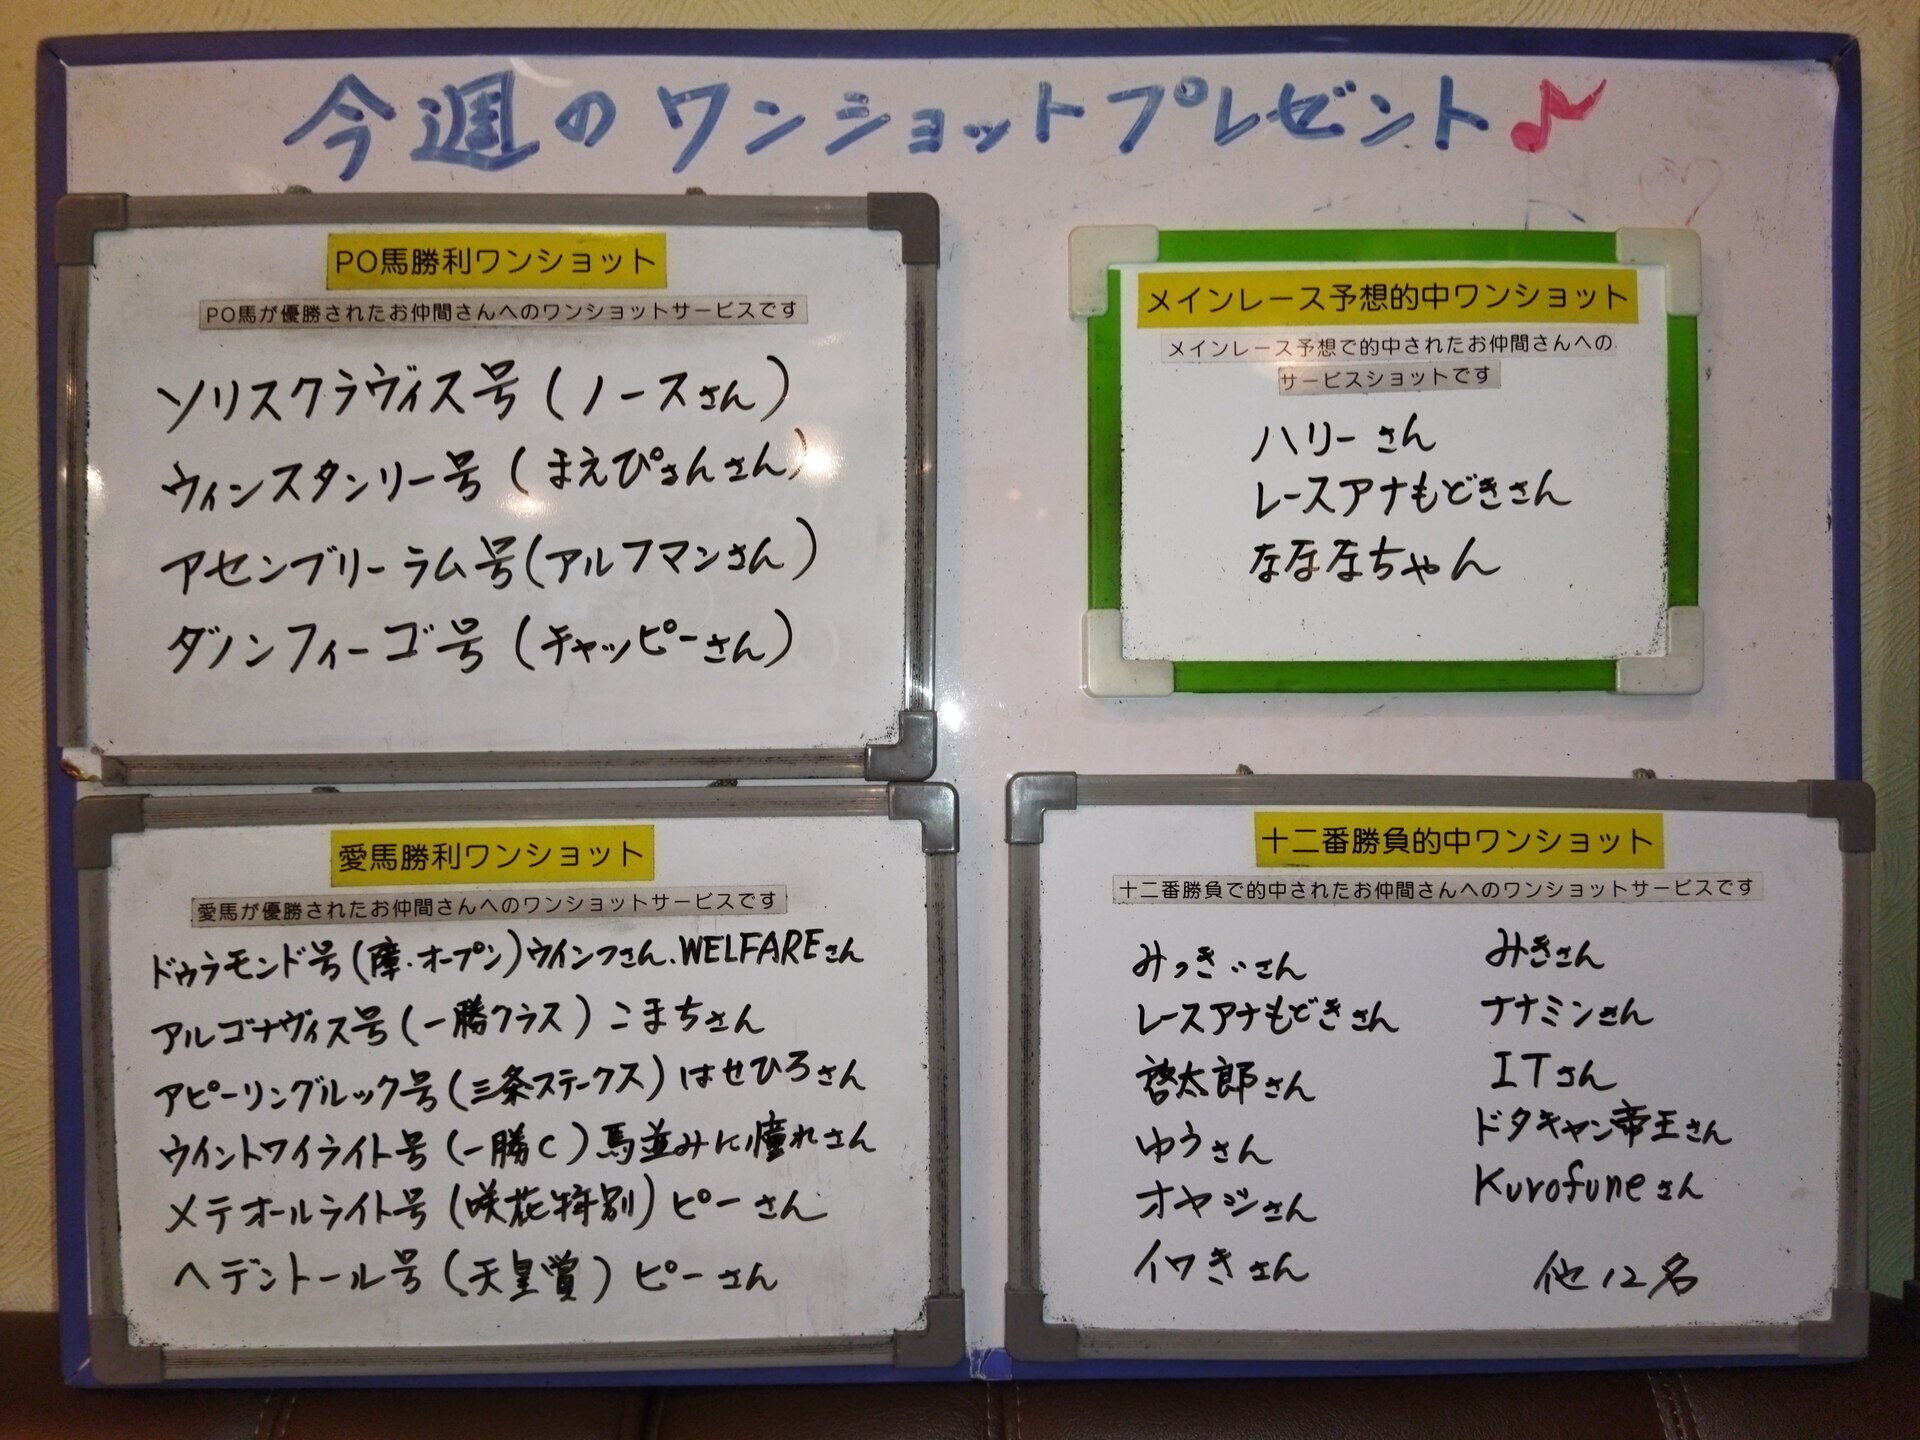 今週のワンショットプレゼント♪
PO馬勝利ワンショット
PO馬が優勝されたお仲間さんへのワンショットサービスです
ソリスクラヴィス号(ノースさん)
ウィンスタンリー号(まえぴょんさん)
アセンブリーラム号(アルフマンさん)
ダノンフィーゴ号(チャッピーさん)
メインレース予想的中ワンショット
メインレース予想で的中されたお仲間さんへの
サービスショットです
ハリーさん
レースアナもどきさん
なななちゃん
愛馬勝利ワンショット
愛馬が優勝されたお仲間さんへのワンショットサービスです
ドゥラモンド号(障・オープン)ウインフさん、WELFAREさん
アルゴナヴィス号(一勝クラス)こまちさん
アピーリングルック号(三条ステークス)はせひろさん
ウイントワイライト号(一勝C)馬並みに憧れさん
メテオールライト号(咲花特別)ピーさん
ヘデントール号(天皇賞)ピーさん
十二番勝負的中ワンショット
十二番勝負で的中されたお仲間さんへのワンショットサービスです
みっきぃさん
レースアナもどきさん
啓太郎さん
ゆうさん
オヤジさん
イワきさん
みきさん
ナナミンさん
ITさん
ドタキャン帝王さん
Kurofuneさん
他12名